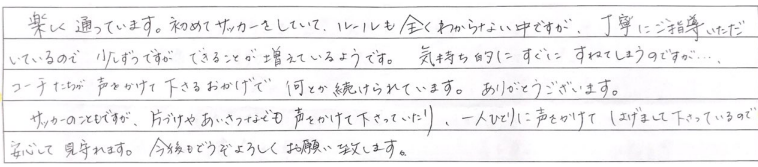 楽しく通っています。初めてサッカーをしていて、ルールも全くわからない中ですが、丁寧にご指導いただ
いているので 少しずつですが できることが増えているようです。 気持ち的に すぐに すねてしまうのですが…、
コーチたちが声をかけて下さるおかげで 何とか続けられています。ありがとうございます。
サッカーのこともですが、片づけやあいさつなども声をかけて下さっていたり、一人ひとりに声をかけて はげまして下さっているので
安心して見守れます。今後もどうぞよろしくお願い致します。